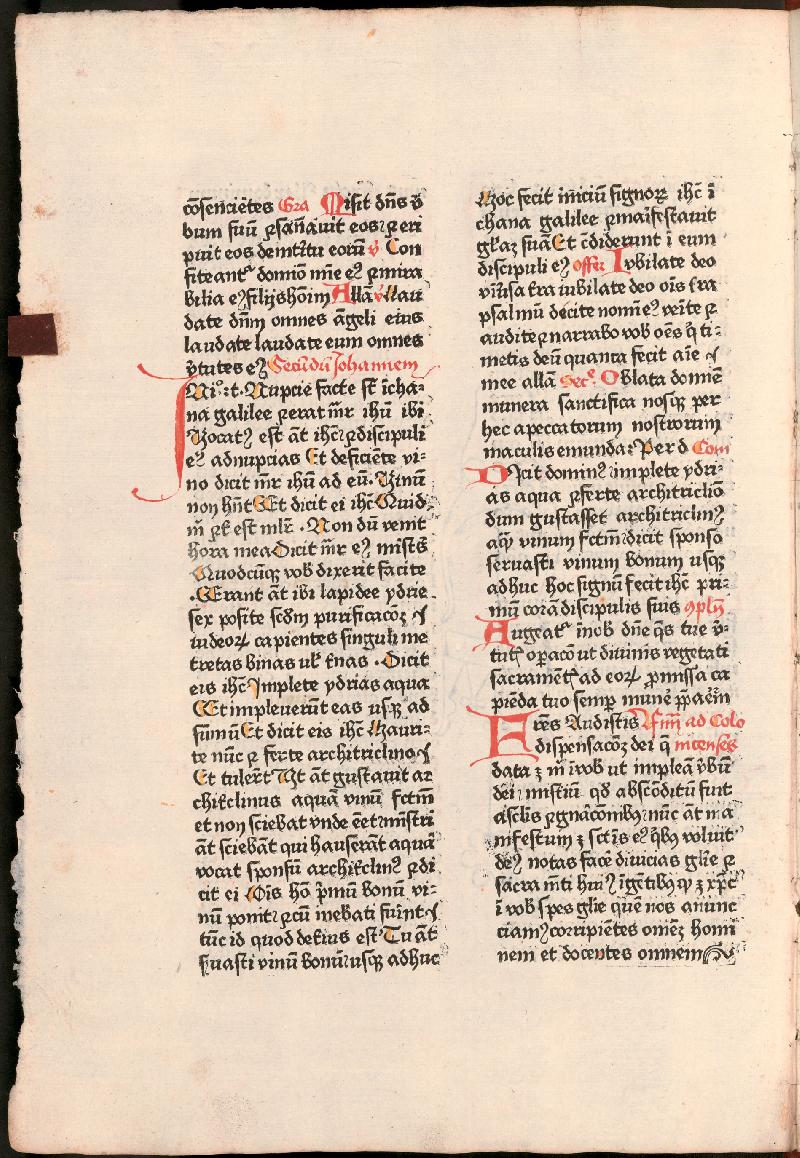 cōsenciētes Gra Misit dn̄s v̄
bum suū ⁊ sanauit eos ⁊ eri
puit eos de int̄itu eorū v̄ Con
fiteantᵉ domīo mīe eꝰ ⁊ mira
bilia eꝰ filijs hoīm Allā v̄ Lau
date dn̄m omnes āgeli eius
laudate laudate eum omnes
v̄tutes eꝰ Secūdū Johannem
IN i° t̄. Nupcie facte st̄ ī cha⸗
na galilee ⁊ erat m̄r ihū ibi
Vocatꝰ est āt ihc̄ ⁊ discipuli
eꝰ ad nupcias Et deficiēte vi⸗
no dicit m̄r ihū ad eū. Vinū
non hn̄t Et dicit ei ihc̄ Quid
m̄ ⁊ t̄ est ml̄r. Non dū venit
hora mea Dicit m̄r eꝰ mīstīs
Quodcūqꝫ vob dixerit facite
Erant āt ibi lapidee ydrie
sex posite scd̄m purificacōꝫ
iudeoꝝ capientes singuli me
tretas binas ul̄ t̄nas. Dicit
eis ihc̄ Implete ydrias aqua
Et impleuerūt eas usqꝫ ad
sūmū Et dicit eis ihc̄ Hauri⸗
te nūc ⁊ ferte architriclino
Et tuler̄t Vt āt gustauit ar
chit̄clinus aquā vinū fctm̄
et non sciebat vnde ēet mīstri
āt sciebāt qui hauserāt aquā
vocat sponsū archit̄clinꝰ ⁊ di
cit ei Oīs hō p̄mū bonū vi⸗
nū ponit ⁊ cū inebati fūint
tūc id quod det̄ius est Tu āt
s̄uasti vinū bonū usqꝫ adhuc
Hoc fecit īniciū signoꝝ ihc̄ ī
chana galilee ⁊ maīfestauit
gl̄iaꝫ suā Et c̄diderunt ī eum
discipuli eꝰ offer̄ Jubilate deo
vniūsa t̄ra iubilate deo oīs t̄ra
psalmū dicite nomīeꝰ veīte ⁊
audite ⁊ narrabo vob oēs q̄ ti⸗
metis deū quanta fecit aīe
mee allā Secᵉ. Oblata domīe
munera sanctifica nosqꝫ per
hec a peccatorum nostrorum
maculis emunda Per d Com
Dicit dominꝰ implete ydri⸗
as aqua ⁊ ferte architricliō
dum gustasset architriclinꝰ
aq̄ vinum fctm̄ dicit sponso
seruasti vinum bonum usqꝫ
adhuc hoc signū fecit ihc̄ pri⸗
mū corā discipulis suis ꝯplꝫ
Augeatᵉ ī nob dn̄e q̄s tue v̄⸗
tutꝭ oꝑacō ut diuinis vegetati
sacramētꝭ ad eoꝝ ꝓmissa ca
piēda tuo semꝑ munē p̄paēm̄
Frēs Audistis Fīm̄ ad Colo
dispensacōꝫ dei q̄ incenses
data ꝫ m̄ ī vob ut impleā v̄bū
dei mīstiū qd̄ abscōditū fuit
a sclis ⁊ gnācōnibꝰ nūc āt ma
nifestum ꝫ sctīs eꝰ qibꝰ voluit
deꝰ notas facē diuicias glīe
sacramēti huiꝰ ī gētibꝰ qꝫ ꝫ xp̄c
ī vob spes glīe quē nos anunc
ciamꝰ corripiētes omēꝫ homi
nem et docentes omnem